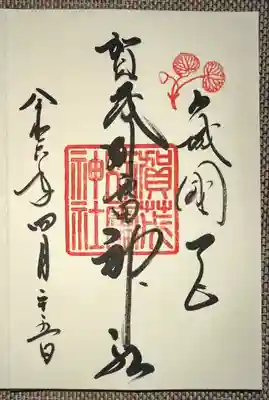 山城國一宮
賀茂別雷神社
賀茂
別雷
神社
令和六年四月二十五日